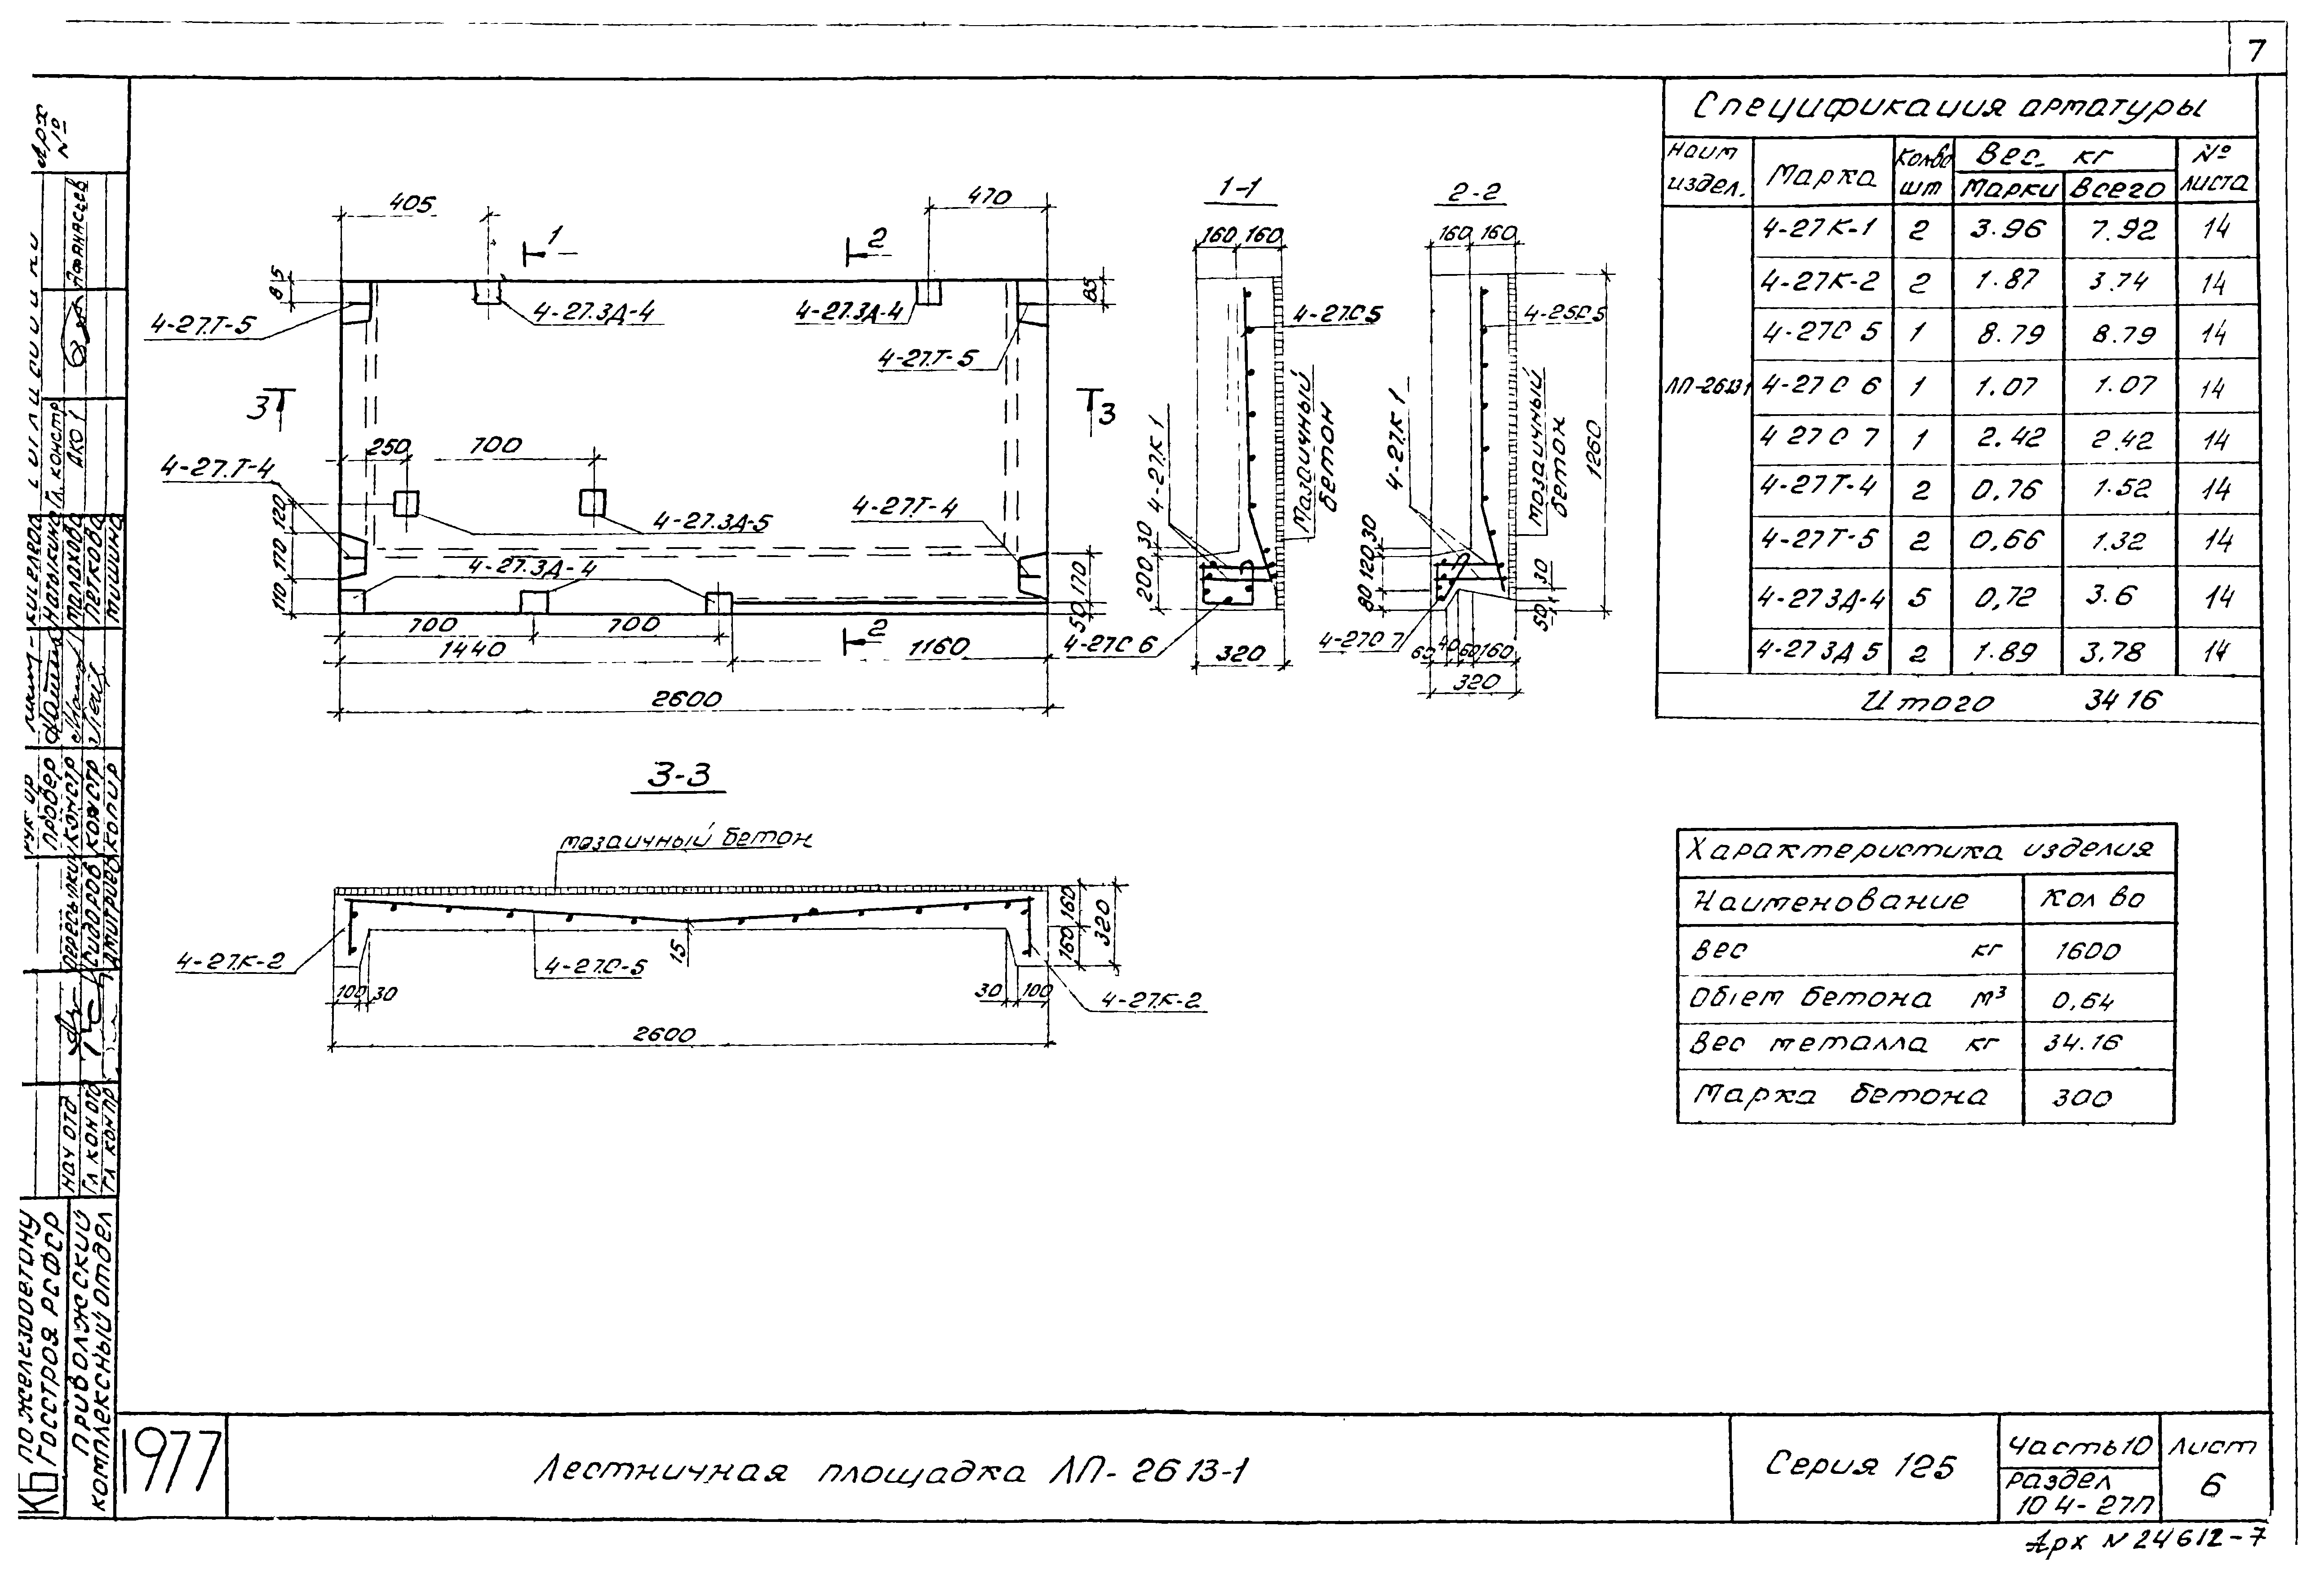 7
405
470
1
2
85
85
4-27.Т-5
4-27.ЗД-4
4-27.ЗД-4
4-27.Т-5
3
3
250
700
4-27.Т-4
4-27.ЗД-5
4-27.Т-4
120
170
110
4-27.ЗД-4
170
50
700
700
2
1440
1160
2600
1-1
160 160
4-27С5
4-27.К1
Мозаичный
бетон
30
200
4-27С 6
320
2-2
160 160
4-25С5
4-27.К1
мозаичный
бетон
1260
30
120
80
30
50
4-27С 7
60 40 60 160
320
3-3
мозаичный бетон
160
160
320
15
4-27.К-2
4-27.С-5
4-27.К-2
100 30
30 100
2600
Спецификация арматуры
Наим издел.
Марка
Кол.во шт
Вес. кг
Марки
Всего
№ листа
ЛП-2613 1
4-27К-1 2 3.96 7.92 14
4-27К-2 2 1.87 3.74 14
4-27С 5 1 8.79 8.79 14
4-27С 6 1 1.07 1.07 14
4 27С 7 1 2.42 2.42 14
4-27Т-4 2 0,76 1.52 14
4-27Т-5 2 0,66 1.32 14
4-27ЗД-4 5 0,72 3.6 14
4-27 ЗД 5 2 1.89 3.78 14
Итого 34 16
Характеристика изделия
Наименование Кол во
Вес кг 1600
Обıем бетона м³ 0,64
Вес металла кг 34.16
Марка бетона 300
Арх №
Афанасьев
Гл. констр
АКО 1
Малахова
Петкова
Мишина
провер
констр
констр
копир
Сидоров
Дмитриев
Нач отд
Гл кон отд
Гл контр
КБ по железобетону
Госстроя РСФСР
Приволжский
комплексный отдел
1977
Лестничная площадка ЛП-2613-1
Серия 125
Часть 10
раздел
10 4-27П
Лист
6
Арх N 24612-7